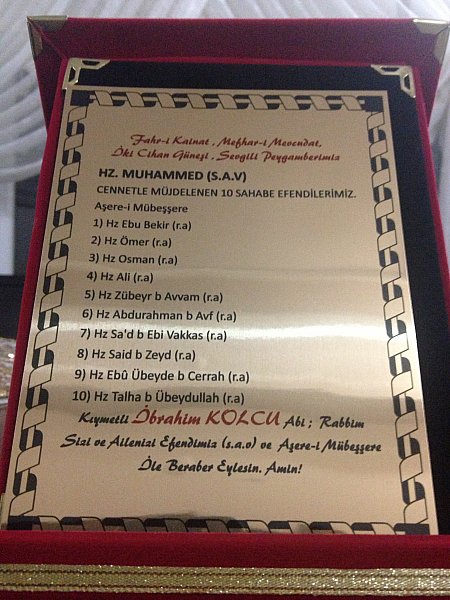 Fahr-i Kainat , Mefhar-i Mevcudat,
İki Cihan Güneşi , Sevgili Peygamberimiz
HZ. MUHAMMED (S.A.V)
CENNETLE MÜJDELENEN 10 SAHABE EFENDİLERİMİZ.
Aşere-i Mübeşşere
1) Hz Ebu Bekir (r.a)
2) Hz Ömer (r.a)
3) Hz Osman (r.a)
4) Hz Ali (r.a)
5) Hz Zübeyr b Avvam (r.a)
6) Hz Abdurahman b Avf (r.a)
7) Hz Sa'd b Ebi Vakkas (r.a)
8) Hz Said b Zeyd (r.a)
9) Hz Ebû Übeyde b Cerrah (r.a)
10) Hz Talha b Übeydullah (r.a)
Kıymetli İbrahim KOLCU Abi ; Rabbim
Sizi ve Ailenizi Efendimiz (s.a.v) ve Aşere-i Mübeşşere
İle Beraber Eylesin. Amin!